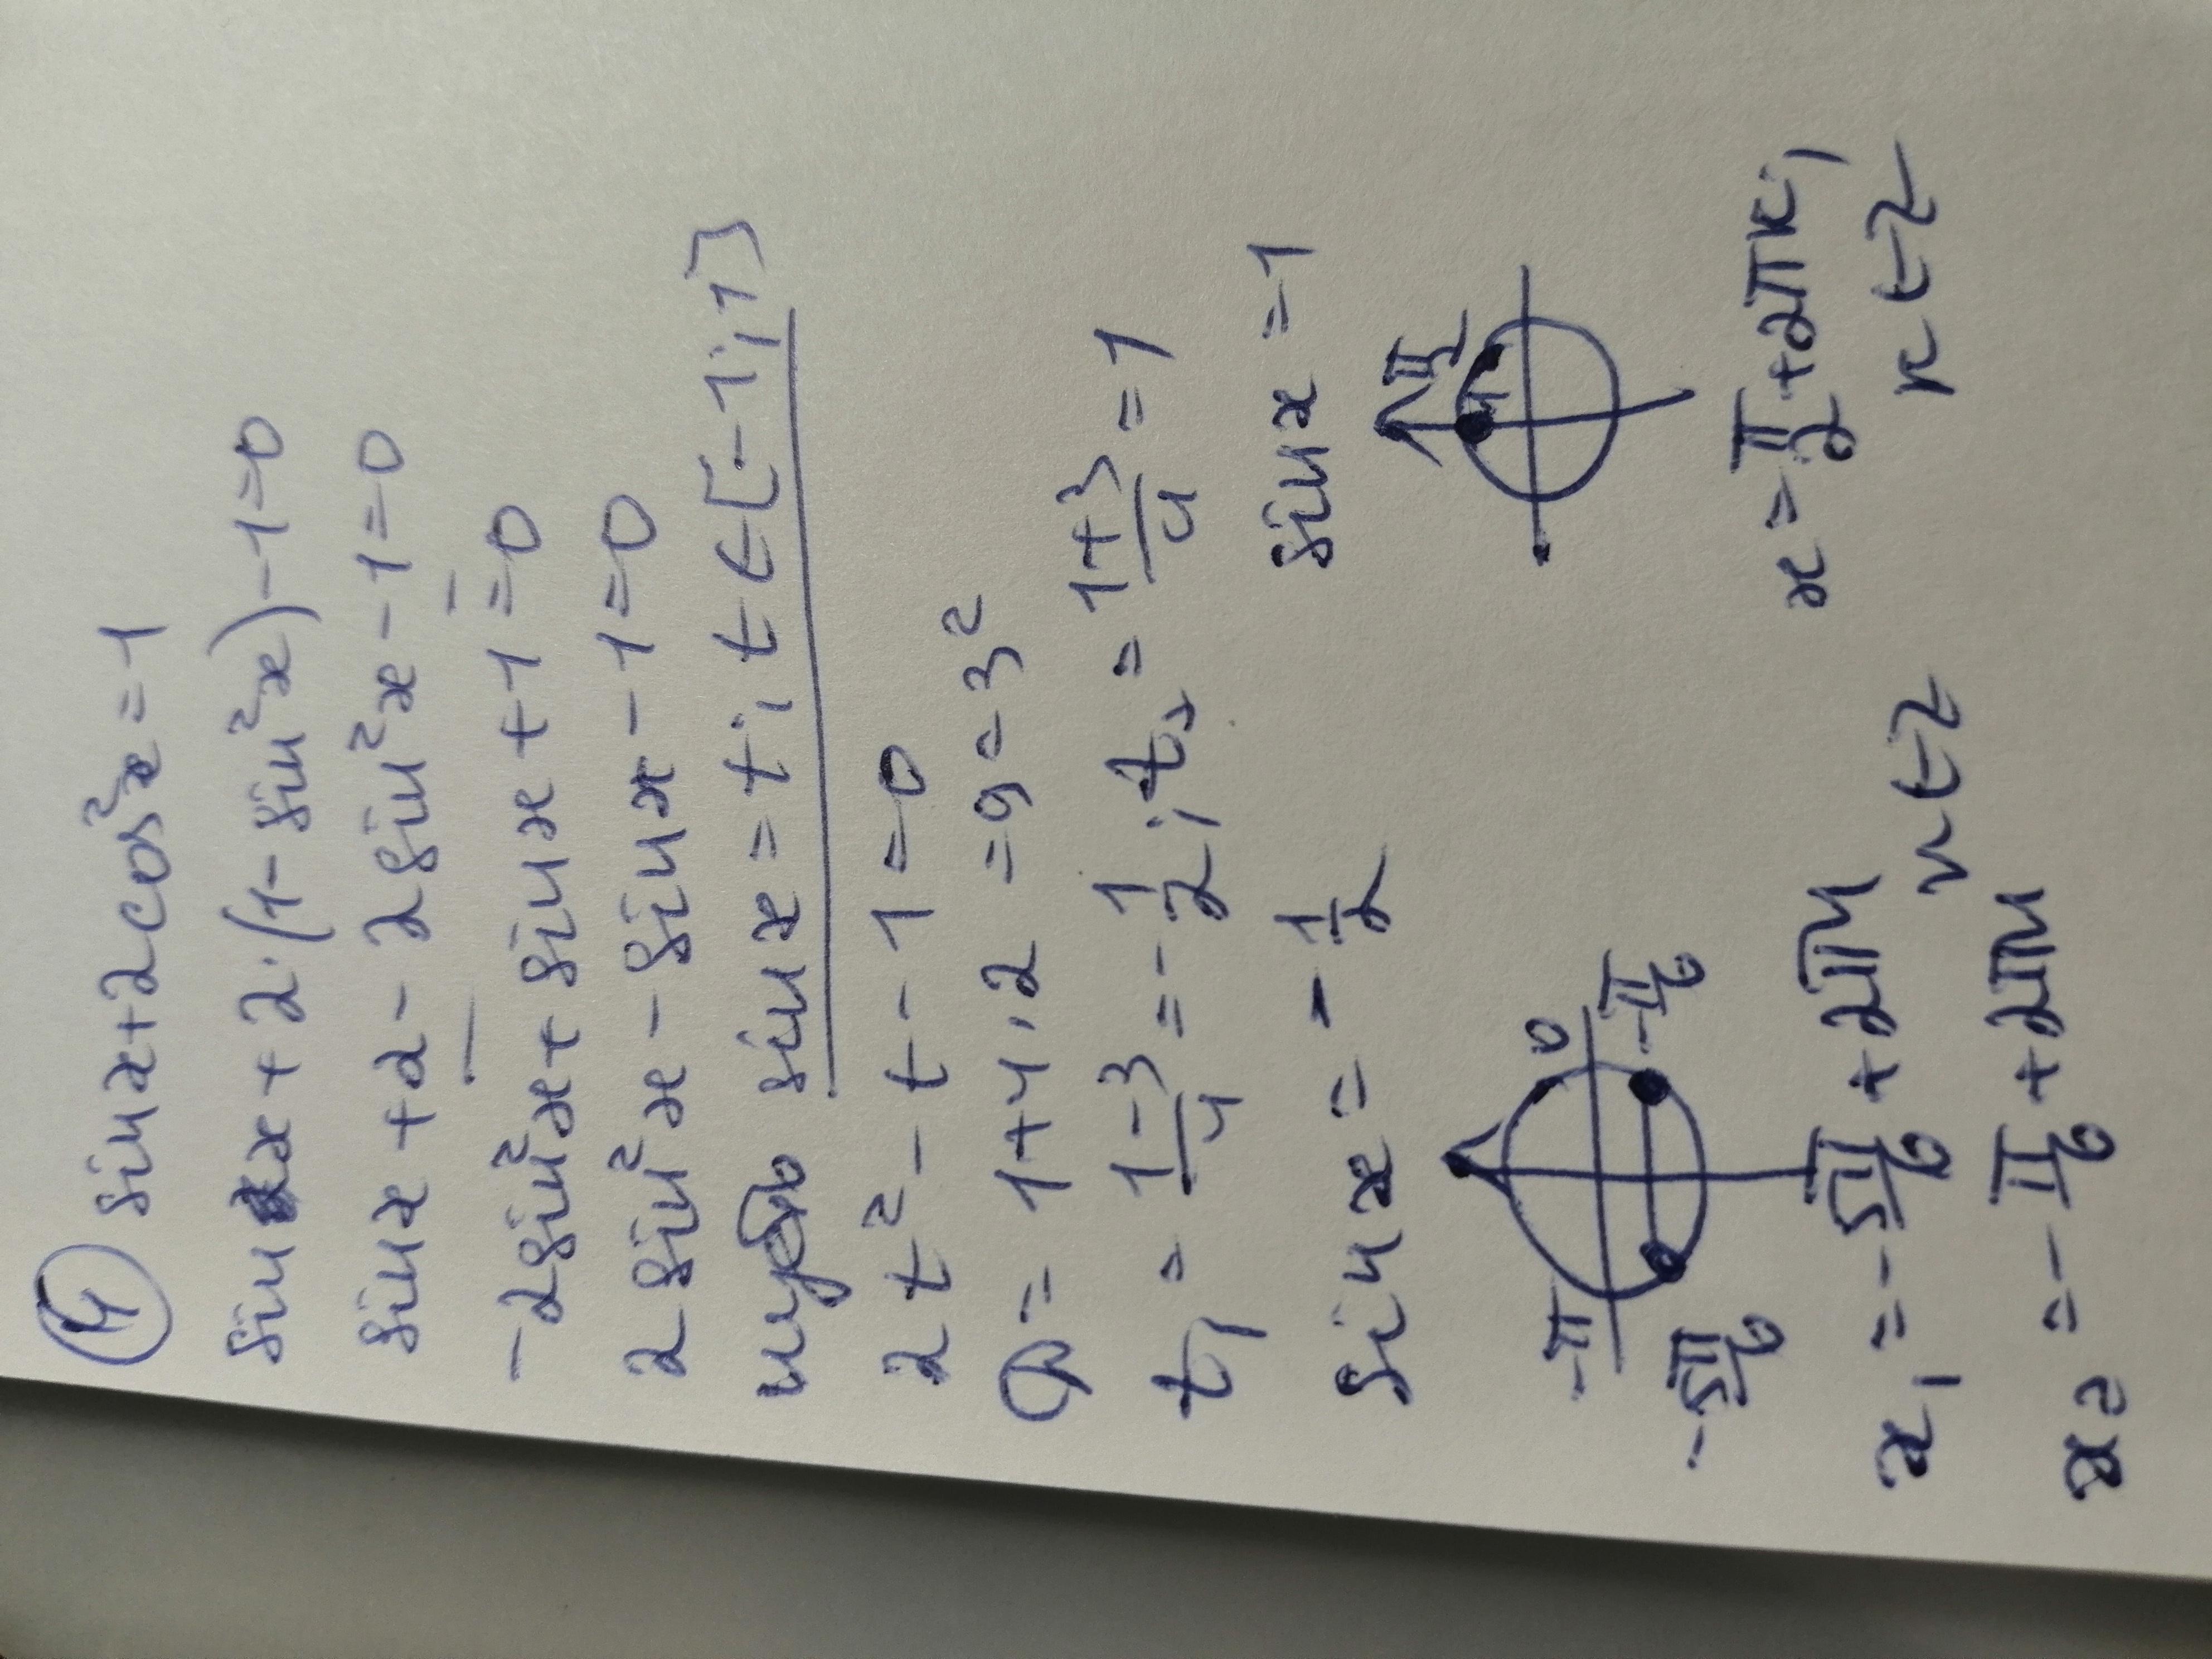 ④ sin x + 2 cos²x = 1
sin x + 2·(1 - sin²x) - 1 = 0
sin x + 2 - 2 sin²x - 1 = 0
-2 sin²x + sin x + 1 = 0
2 sin²x - sin x - 1 = 0
пусть sin x = t; t ∈ [-1; 1]
2t² - t - 1 = 0
D = 1 + 4·2 = 9 = 3²
t₁ = (1-3)/4 = -1/2; t₂ = (1+3)/4 = 1
sin x = -1/2 sin x = 1
π/2
1
-π 0
-5π/6 -π/6
x₁ = -5π/6 + 2πn x = π/2 + 2πк,
n ∈ Z к ∈ Z
x₂ = -π/6 + 2πn